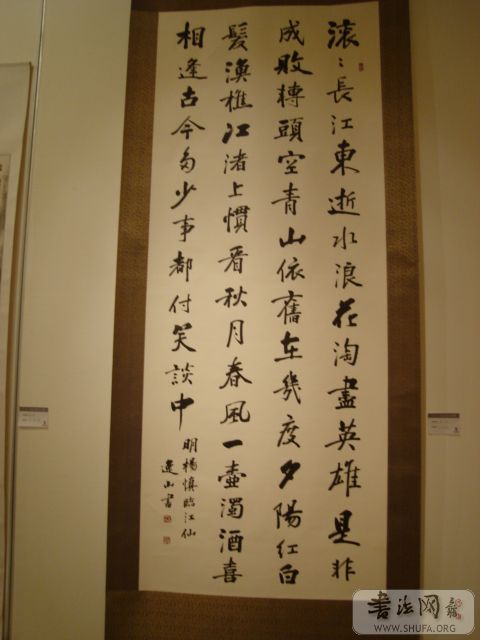 滚〻長江東逝水浪花淘盡英雄是非
成敗轉頭空青山依舊在幾度夕陽紅白
髮漁樵江渚上慣看秋月春風一壺濁酒喜
相逢古今多少事都付笑談中
明楊慎臨江仙
山書
書法网
WWW.SHUFA.ORG